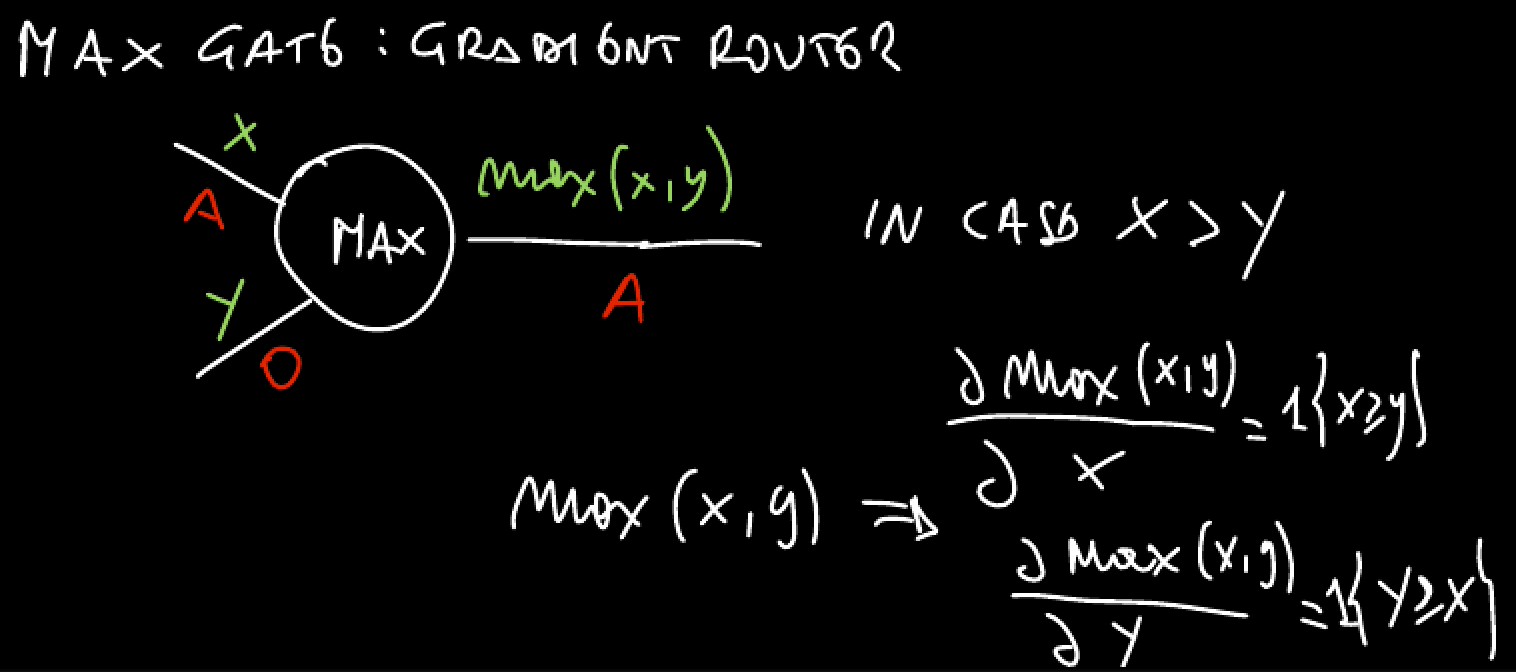 MAX GATE : GRADIENT ROUTER
X
max(x,y)
A
MAX
IN CASE X > Y
Y
A
O
∂ max(x,y) / ∂ x = 1{x≥y}
max(x,y) ⇒
∂ max(x,y) / ∂ y = 1{y≥x}